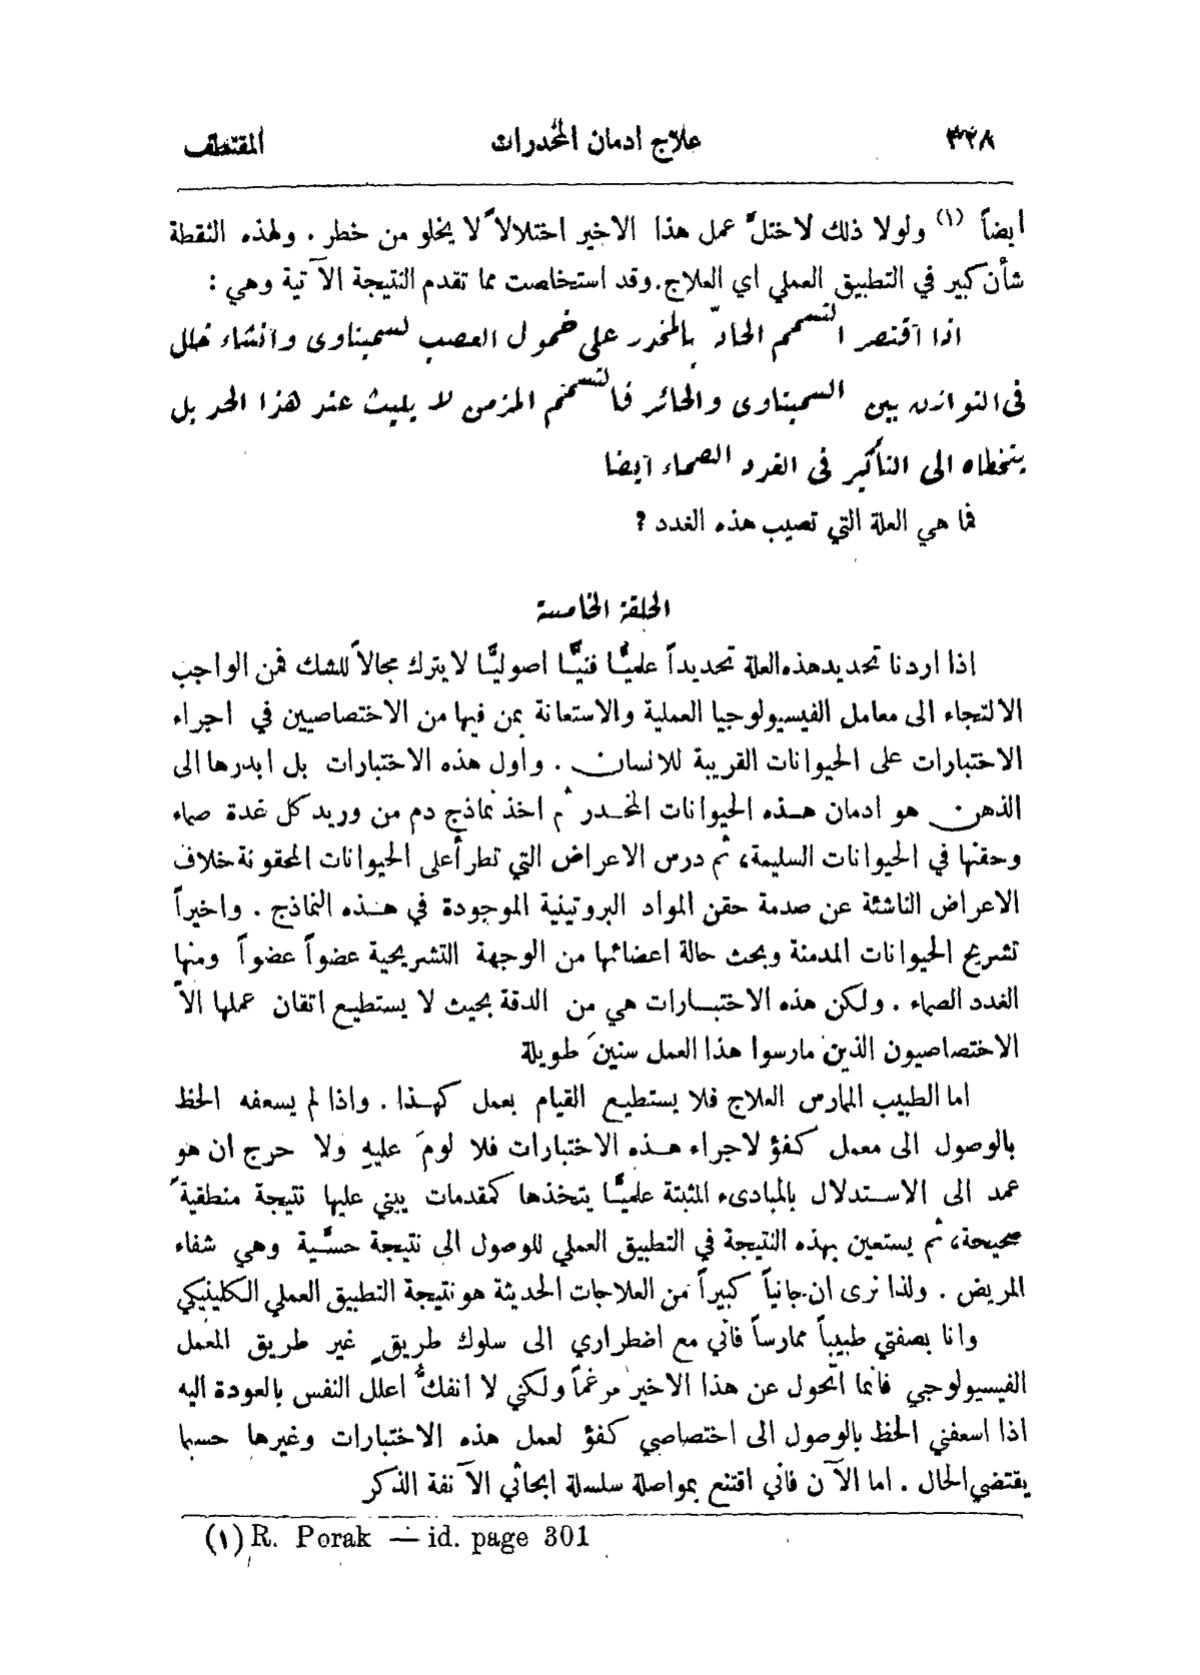 ٣٢٨ علاج ادمان المخدرات المقتطف
ايضاً (١) ولولا ذلك لاختلَّ عمل هذا الاخير اختلالاً لا يخلو من خطر . ولهذه النقطة
شأن كبير في التطبيق العملي اي العلاج. وقد استخلصت مما تقدم النتيجة الآتية وهي :
اذا اقتصر التسمم الحادّ بالمخدر على خمول العصب لسمبتاوى وانشاء خلل
فى التوازن بين السمبتاوى والحائر فالتسمم المزمن لا يلبث عند هذا الحد بل
يتخطاه الى التأثير فى الغدد الصماء ايضا
فما هي العلة التي تصيب هذه الغدد ؟
الحلقة الخامسة
اذا اردنا تحديد هذه العلة تحديداً علميًّا فنيًّا اصوليًّا لا يترك مجالاً للشك فمن الواجب
الالتجاء الى معامل الفيسيولوجيا العملية والاستعانة بمن فيها من الاختصاصيين في اجراء
الاختبارات على الحيوانات القريبة للانسان . واول هذه الاختبارات بل ابدرها الى
الذهن هو ادمان هذه الحيوانات المخدر ثم اخذ نماذج دم من وريد كل غدة صماء
وحقنها في الحيوانات السليمة، ثم درس الاعراض التي تطرأ على الحيوانات المحقونة خلاف
الاعراض الناشئة عن صدمة حقن المواد البروتينية الموجودة في هذه النماذج . واخيراً
تشريح الحيوانات المدمنة وبحث حالة اعضائها من الوجهة التشريحية عضواً عضواً ومنها
الغدد الصماء . ولكن هذه الاختبارات هي من الدقة بحيث لا يستطيع اتقان عملها الاَّ
الاختصاصيون الذين مارسوا هذا العمل سنينَ طويلة
اما الطبيب الممارس العلاج فلا يستطيع القيام بعمل كهذا . واذا لم يسعفه الحظ
بالوصول الى معمل كفؤ لاجراء هذه الاختبارات فلا لومَ عليهِ ولا حرج ان هو
عمد الى الاستدلال بالمبادىء المثبتة علميًّا يتخذها كمقدمات يبني عليها نتيجة منطقيةً
صحيحة، ثم يستعين بهذه النتيجة في التطبيق العملي للوصول الى نتيجة حسّية وهي شفاء
المريض . ولذا نرى ان جانباً كبيراً من العلاجات الحديثة هو نتيجة التطبيق العملي الكلينيكي
وانا بصفتي طبيباً ممارساً فاني مع اضطراري الى سلوك طريقٍ غير طريق المعمل
الفيسيولوجي فانما اتحول عن هذا الاخير مرغماً ولكني لا انفكُّ اعلل النفس بالعودة اليه
اذا اسعفني الحظ بالوصول الى اختصاصي كفؤ لعمل هذه الاختبارات وغيرها حسبما
يقتضي الحال . اما الآن فاني اقتنع بمواصلة سلسلة ابحاثي الآنفة الذكر
(١) R. Porak — id. page 301